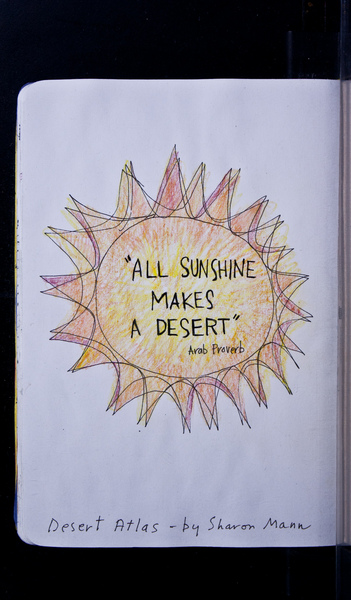 "ALL SUNSHINE
MAKES
A DESERT"
Arab Proverb
Desert Atlas - by Sharon Mann